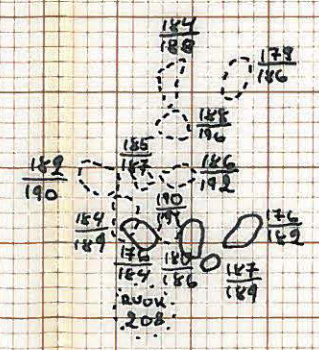 184
188
179
186
188
196
185
187
186
192
182
190
190
184
189
176
182
176
184
180
186
187
189
208